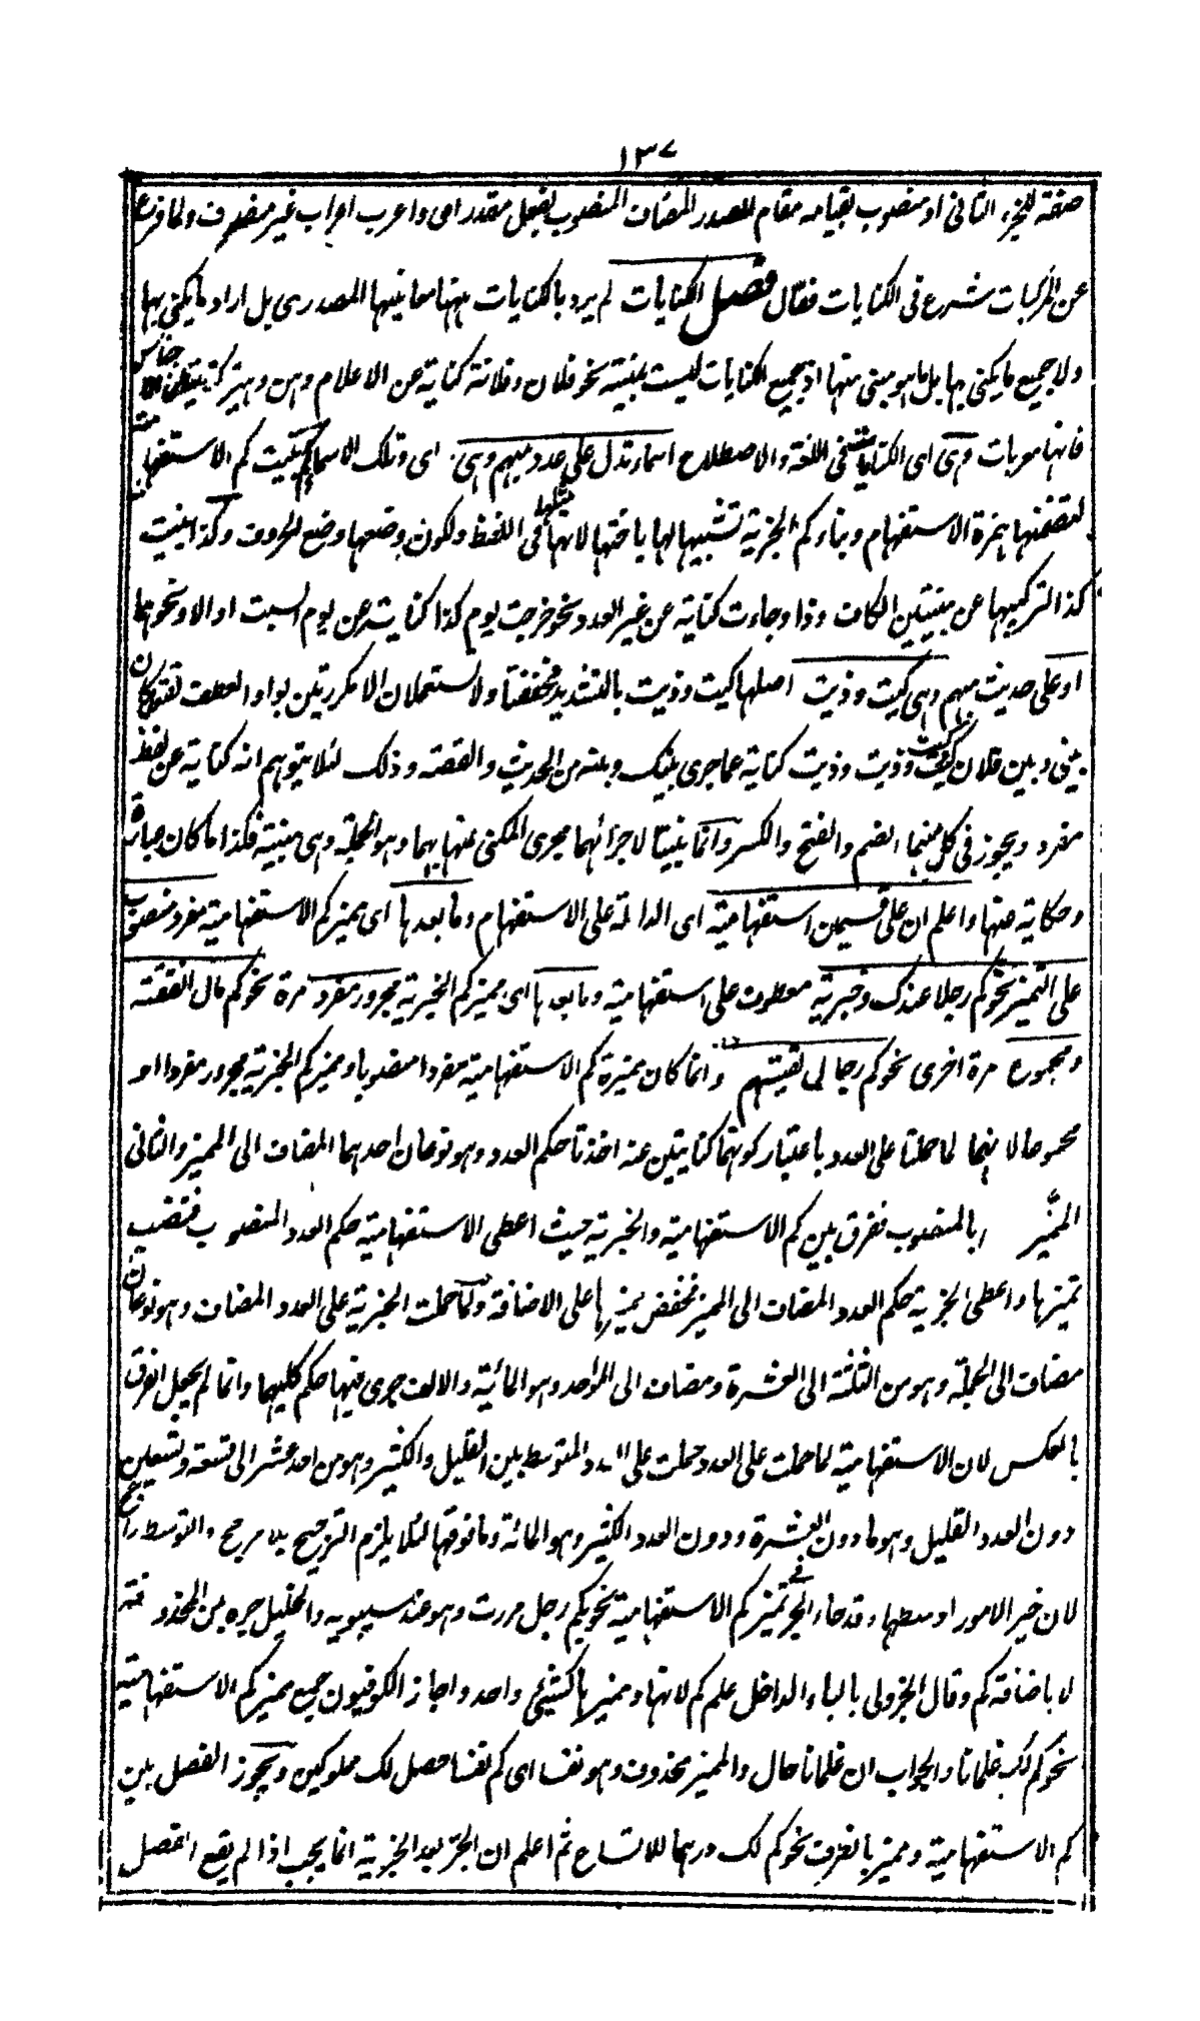 ١٣٧
صفة للجزء الثانى او منصوب بقيامه مقام المصدر المضاف المنصوب بفعل مقدر اى واعرب اعراب غير منصرف ولما فرغ
عن المركبات شرع فى الكنايات فقال فصل الكنايات لم يرد بالكنايات ههنا معانيها المصدرى بل اراد ما يكنى بها
ولا جميع ما يكنى بها بل ما هو مبنى منها اذ جميع الكنايات ليست بمبنية نحو فلان وفلانة كناية عن الاعلام وهن وهنة كنايتان
فانها معربات وهى اى الكنايات فى اللغة والاصطلاح اسماء تدل على عدد مبهم وهى اى وتلك الاسماء كم بنيت كم الاستفهامية
لتضمنها همزة الاستفهام وبناء كم الخبرية تشبيها لها باختها لانها مثلها فى اللفظ ولكون وضعها وضع الحروف وكذا بنيت
كذا لتركيبها عن مبنيتين الكاف وذا وجاءت كناية عن غير العدد نحو خرجت يوم كذا كناية عن يوم السبت او الاحد ونحوهما
او على حديث مبهم وهى كيت وذيت اصلهما كيت وذيت بالتشديد فخففتا ولا تستعملان الا مكررتين بواو العطف تقول كان
بينى وبين فلان كيت وكيت وذيت وذيت كناية عما جرى بينك وبينه من الحديث والقصة وذلك لئلا يتوهم انه كناية عن لفظ
مفرد ويجوز فى كل منهما الضم والفتح والكسر وانما بنيتا لاجرائهما مجرى المكنى عنها بهما وهو الجملة وهى مبنية فكذا ما كان عبارة
وحكاية عنها واعلم ان على قسمين استفهامية اى الدالة على الاستفهام وما بعدها اى مميز كم الاستفهامية مفرد منصوب
على التميز نحو كم رجلا عندك وخبرية معطوف على استفهامية وما بعدها اى مميز كم الخبرية مجرور مفرد مرة نحو كم مال انفقته
ومجموع مرة اخرى نحو كم رجال لقيتهم وانما كان مميزة كم الاستفهامية مفردا منصوبا ومميز كم الخبرية مجرور مفردا او
مجموعا لانهما لما حملتا على العدد باعتبار كونهما كنايتين عنه اخذتا حكم العدد وهو نوعان احدهما المضاف الى المميز والثانى
المميز بالمنصوب ففرق بين كم الاستفهامية والخبرية حيث اعطى الاستفهامية حكم العدد المنصوب فنصب
تميزها واعطى الخبرية حكم العدد المضاف الى المميز فخفض مميزها على الاضافة ولما حملت الخبرية على العدد المضاف وهو نوعان
مضاف الى الجملة وهو من الثلثة الى العشرة ومضاف الى الواحد وهو المائة والالف جرى فيها حكم كليهما وانما لم يجعل الفرق
بالعكس لان الاستفهامية لما حملت على العدد حملت على العدد المتوسط بين القليل والكثير وهو من احد عشر الى تسعة وتسعين
دون العدد القليل وهو ما دون العشرة ودون العدد الكثير وهو المائة وما فوقها لئلا يلزم الترجيح بلا مرجح والتوسط راجح
لان خير الامور اوسطها وقد جاء الجر فى تميز كم الاستفهامية نحو بكم رجل مررت وهو عند سيبويه والخليل جره بمن المحذوفة
لا باضافة كم وقال الجزولى بالباء الداخل على كم لانها ومميزها كشئ واحد واجاز الكوفيون جمع مميز كم الاستفهامية
نحو كم لك غلمانا والجواب ان غلمانا حال والمميز محذوف وهو نفسا اى كم نفسا حصل لك مملوكين ويجوز الفصل بين
كم الاستفهامية ومميزها بالظرف نحو كم لك درهما للاتساع ثم اعلم ان الجر بعد الخبرية انما يجب اذا لم يقع الفصل